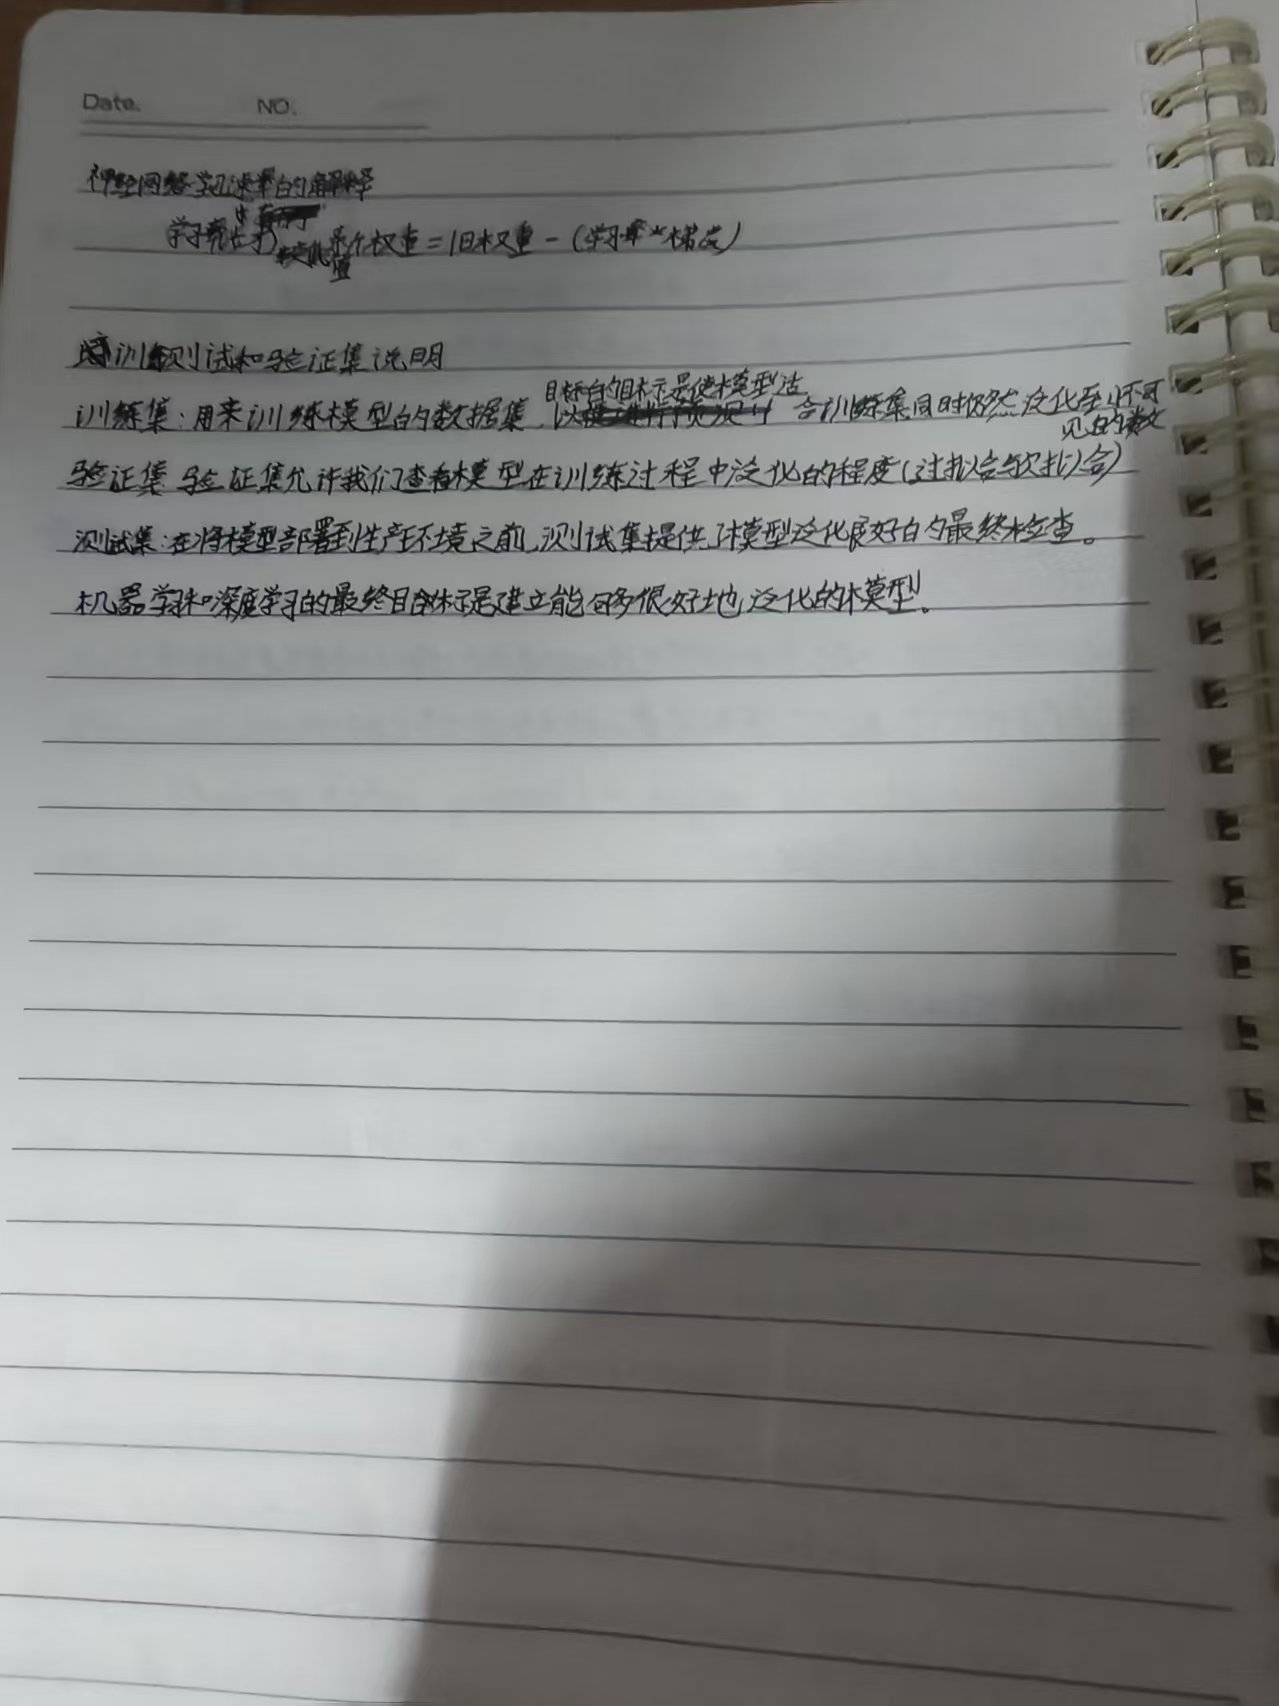 Date. NO.
神经网络学习速率的解释
某个权重 = 旧权重 - (学习率*梯度)
培训测试和验证集说明
训练集:用来训练模型的数据集,目标的目标是使模型适合训练集同时仍然泛化至不可见的数
验证集 验证集允许我们查看模型在训练过程中泛化的程度(过拟合与欠拟合)
测试集:在将模型部署到生产环境之前,测试集提供了模型泛化良好的最终检查。
机器学习和深度学习的最终目标是建立能够很好地泛化的模型。